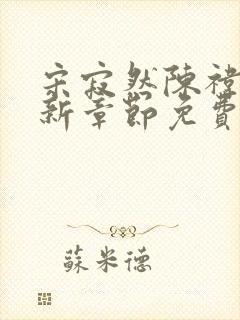 宋寂然陳禕
新章節免費
蘇米德